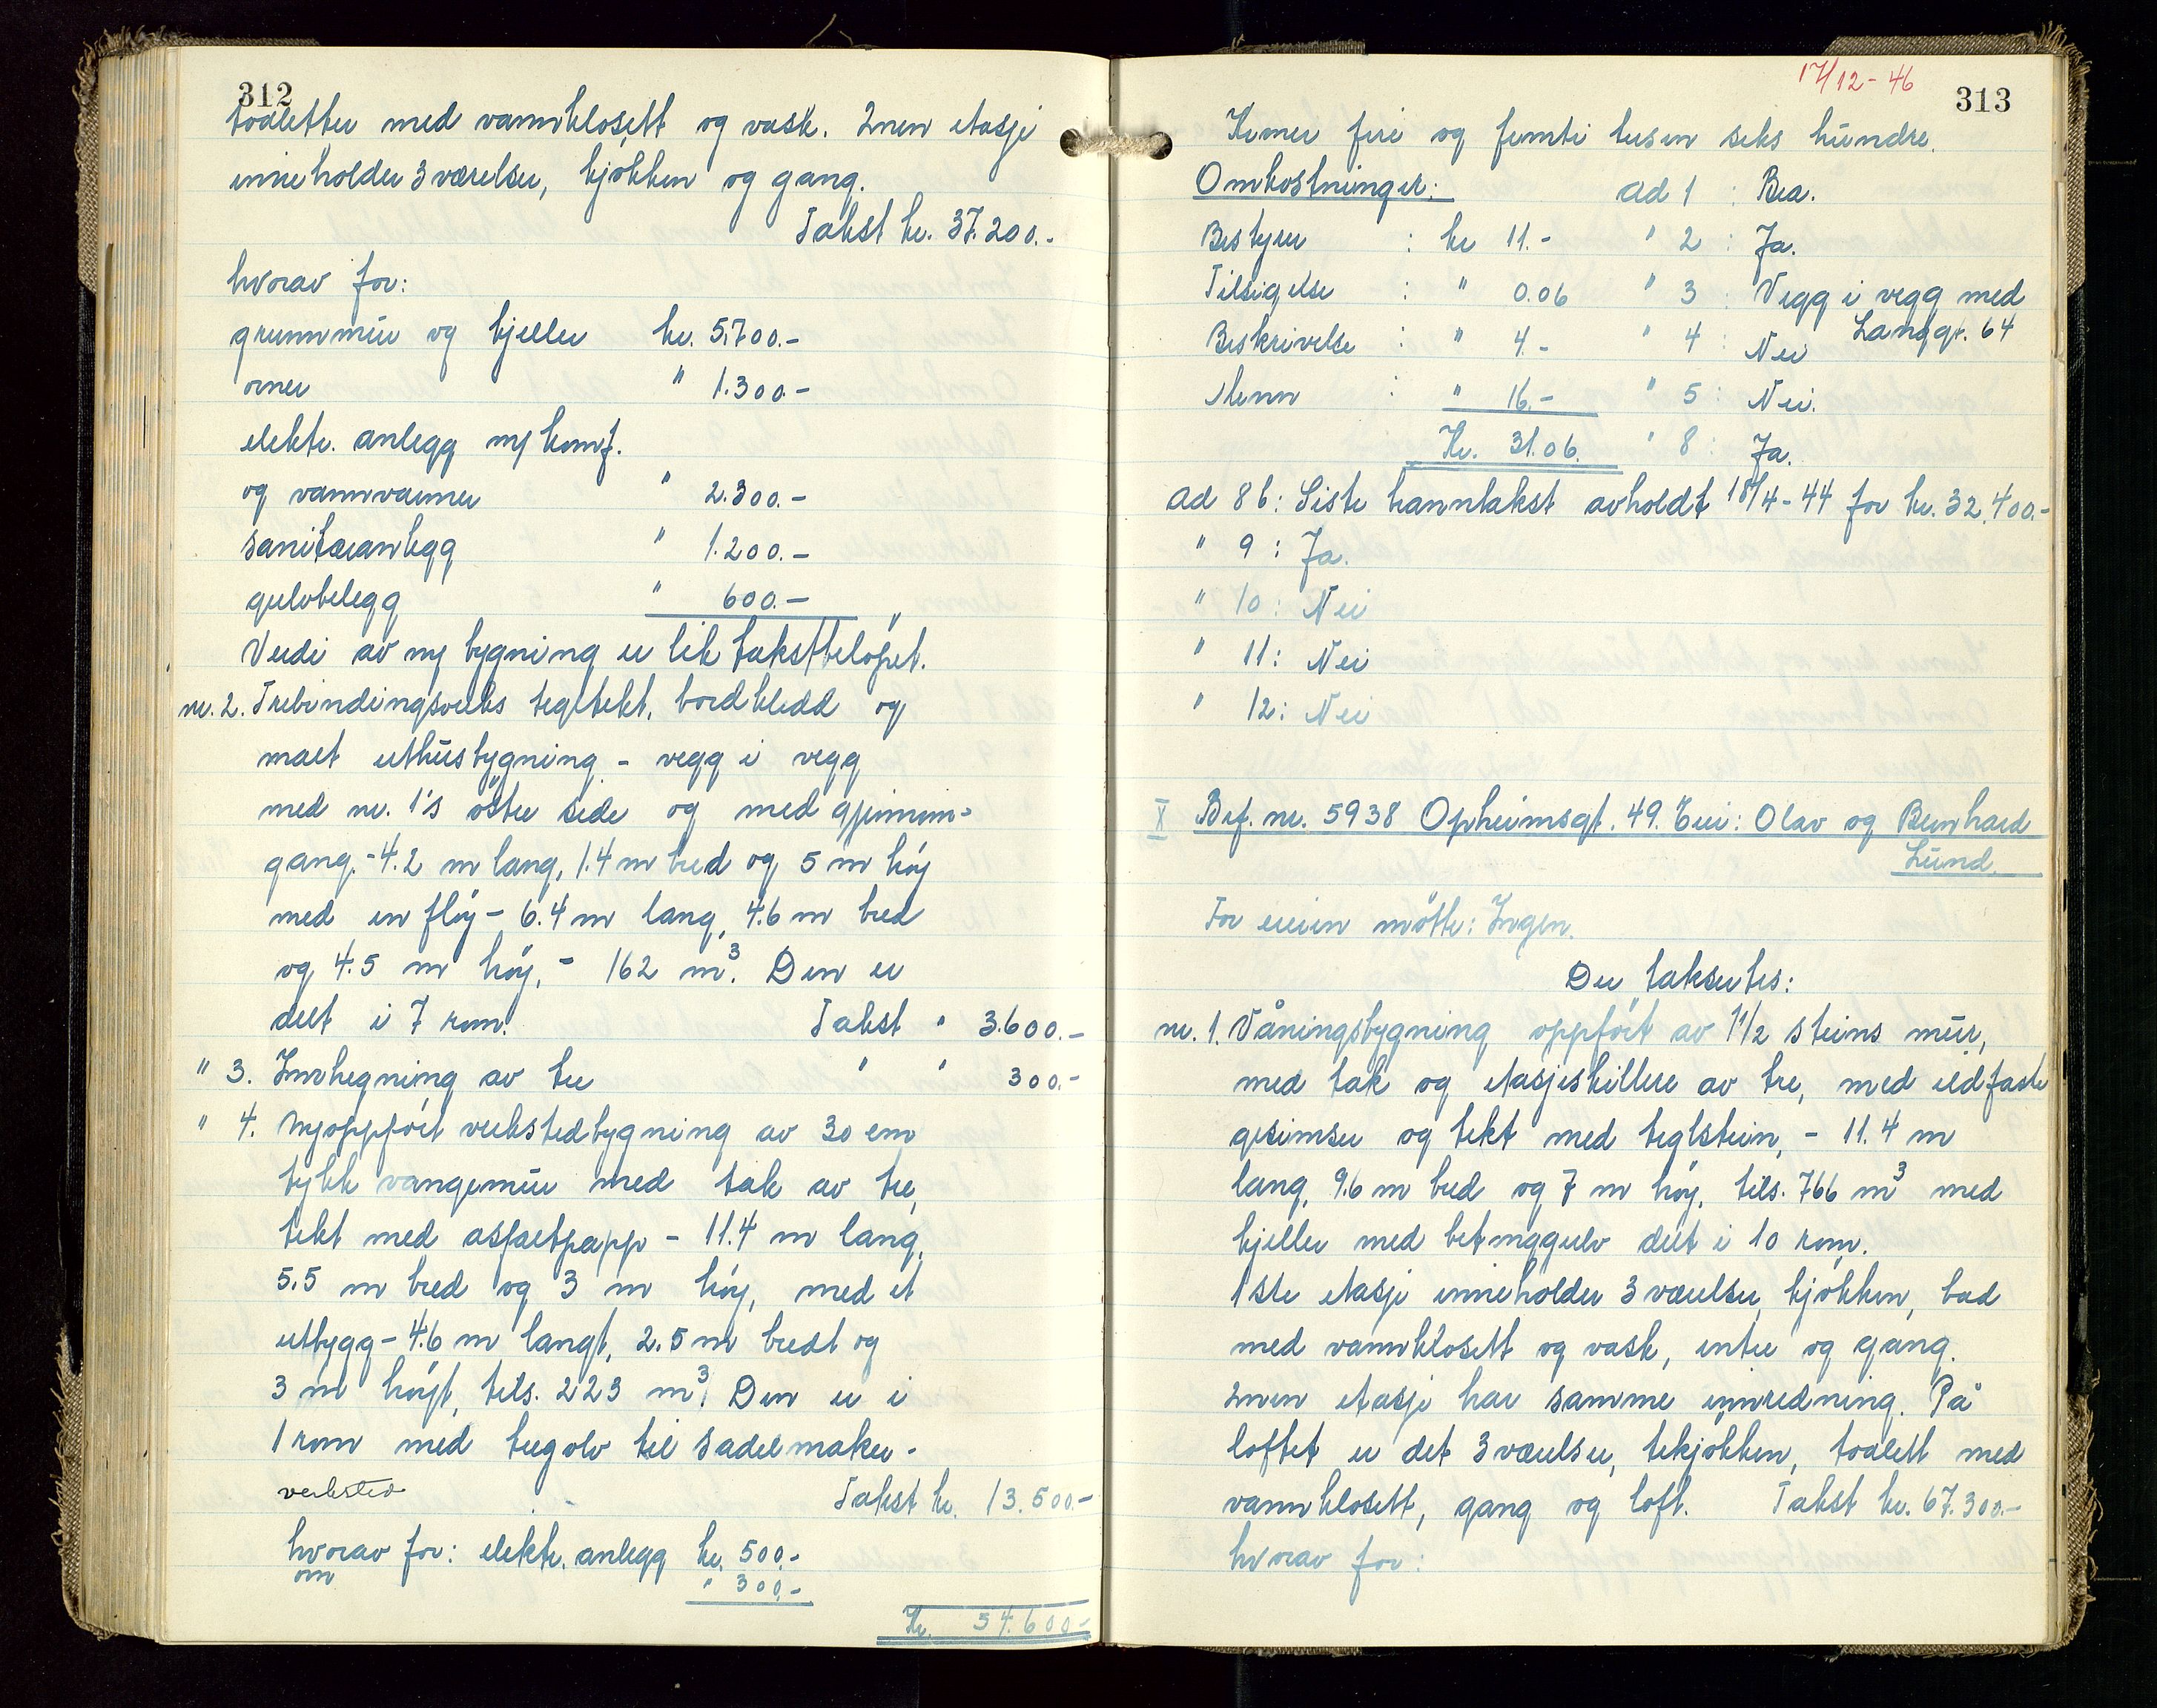 312
toaletter med vannklosett og vask. 2nen etasje
inneholder 3 værelser, kjøkken og gang.
Takst kr. 37.200.-
hvorav for:
grunnmur og kjeller kr. 5.700.-
ovner " 1.300.-
elektr. anlegg m/ komf.
og vannvarmer " 2.300.-
sanitæranlegg " 1.200.-
gulvbelegg " 600.-
Verdi av ny bygning er lik takstbeløpet.
nr. 2. Trebindingsverks tegltekt, bordkledd og
malt uthusbygning - vegg i vegg
med nr. 1's østre side og med gjennom-
gang, - 4.2 m lang, 1.4 m bred og 5 m høy
med en fløy - 6.4 m lang, 4.6 m bred
og 4.5 m høy, - 162 m³. Den er
delt i 7 rom. Takst " 3.600.-
" 3. Innhegning av tre " " 300.-
" 4. Nyoppført verkstedbygning av 30 cm
tykk vangemur med tak av tre,
tekt med asfaltpapp - 11.4 m lang,
5.5 m bred og 3 m høy, med et
utbygg - 4.6 m langt, 2.5 m bredt og
3 m høyt, tils. 223 m³. Den er i
1 rom med tregolv til sadelmaker-
verksted Takst kr. 13.500.-
hvorav for: elektr. anlegg kr. 500.-
ovn " 300.-
Kr. 54.600.-
17/12-46
313
Kroner firi og femti tusen seks hundre.
Omkostninger: ad 1 : Bra.
Bestyrer : kr 11.- " 2 : Ja.
Tilsigelse : " 0.06 " 3 : Vegg i vegg med
Langgt. 64
Beskrivelse : " 4.- " 4 : Nei
Menn : " 16.- " 5 : Nei.
Kr. 31.06. " 8 : Ja.
ad 8 b: Siste branntakst avholdt 18/4-44 for kr. 32.400.-
" 9 : Ja.
" 10 : Nei
" 11 : Nei
" 12 : Nei
X Brf. nr. 5938 Opheimsgt. 49. Eier: Olav og Bernhard
Lund.
For eieren møtte: Ingen.
Der takseres:
nr. 1. Våningsbygning oppført av 1 1/2 steins mur,
med tak og etasjeskillere av tre, med ildfaste
gesimser og tekt med teglstein, - 11.4 m
lang, 9.6 m bred og 7 m høy, tils. 766 m³ med
kjeller med betonggulv delt i 10 rom.
1ste etasje inneholder 3 værelser, kjøkken, bad
med vannklosett og vask, entre og gang.
2nen etasje har samme innredning. På
loftet er det 3 værelser, tekjøkken, toalett med
vannklosett, gang og loft. Takst kr. 67.300.-
hvorav for: